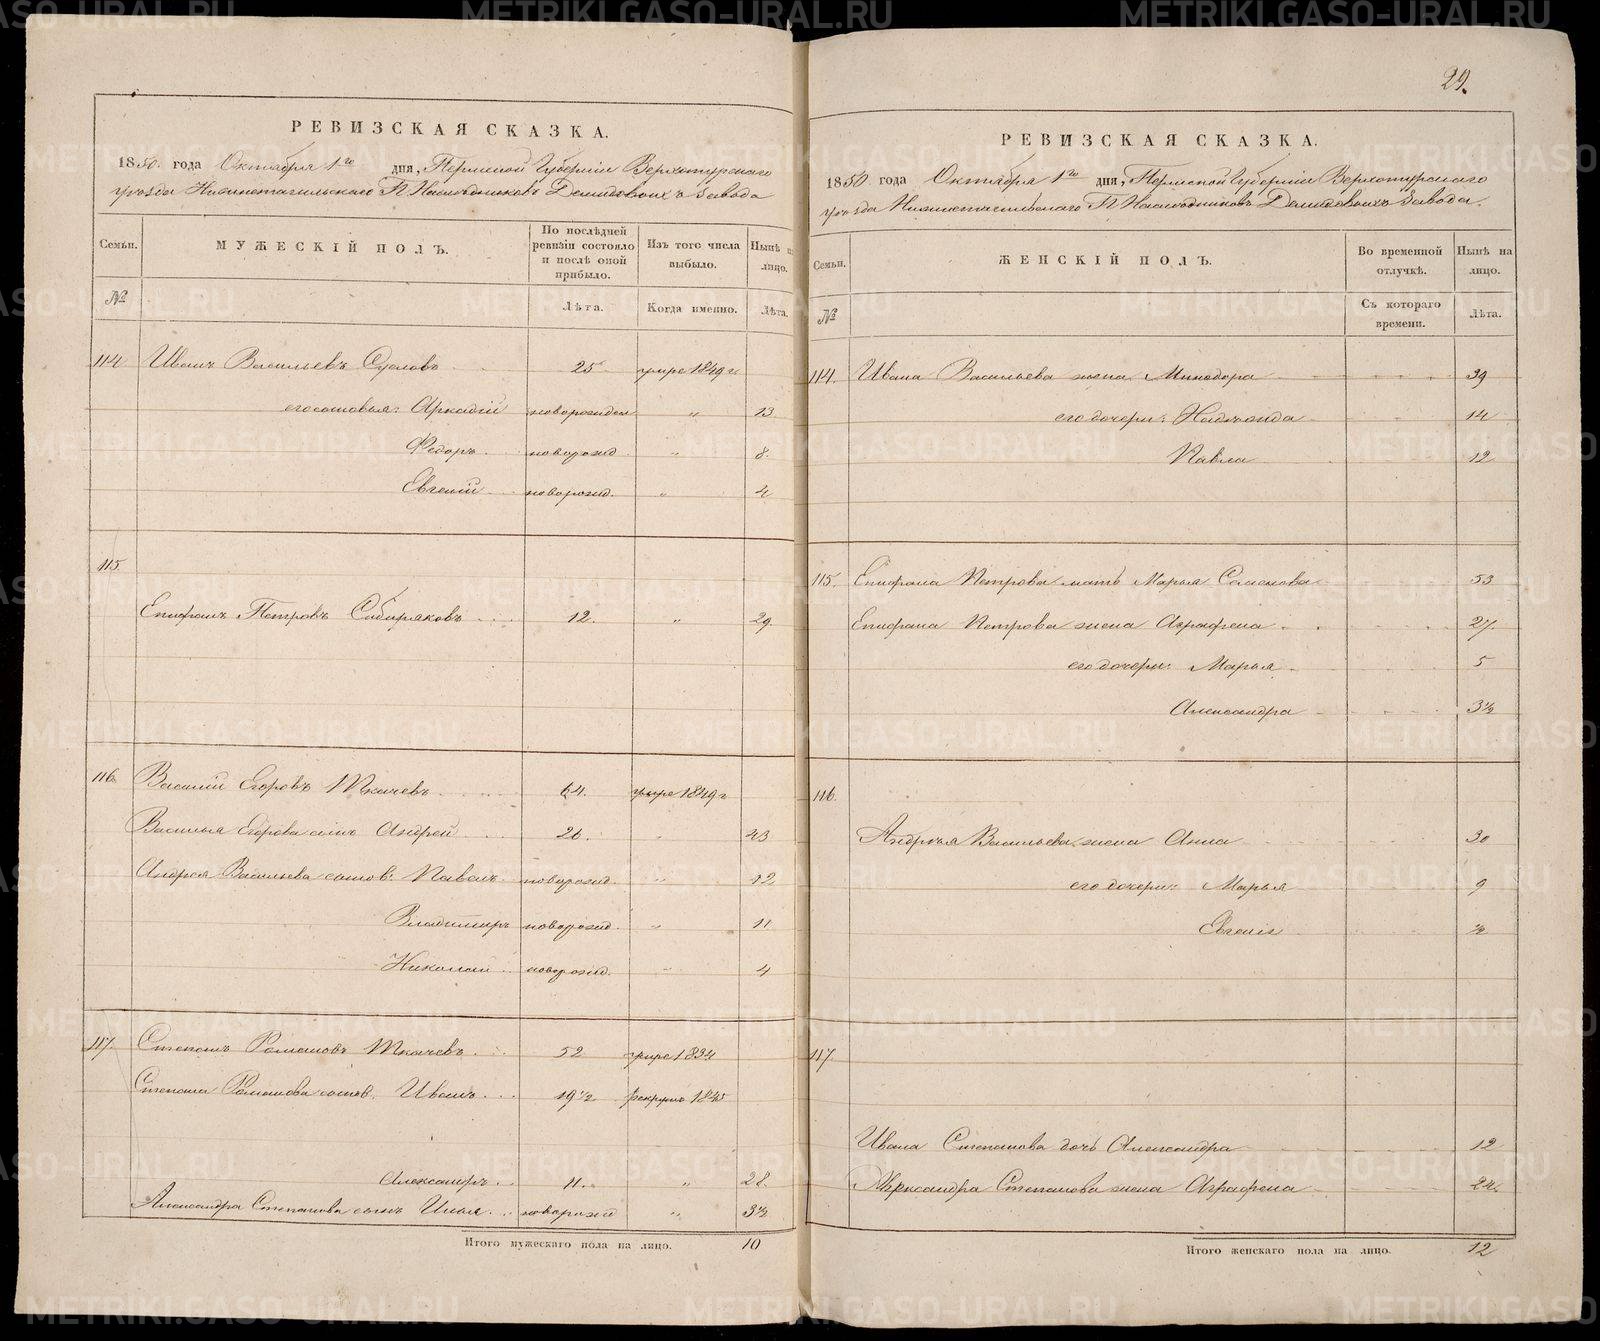 РЕВИЗСКАЯ СКАЗКА.
1850. года Октября 1го дня, Пермской Губернiи Верхотурскаго
уѣзда Нижнетагильскаго Гг. Наслѣдниковъ Демидовыхъ завода
Семьи.
МУЖЕСКІЙ ПОЛЪ.
По послѣдней ревизіи состояло и послѣ оной прибыло.
Изъ того числа выбыло.
Нынѣ на лицо.
№
Лѣта.
Когда именно.
Лѣта.
114 Иванъ Васильевъ Сусловъ 25 умре 1849 г
его сыновья: Аркадій новорожден „ 13
Федоръ новорожд „ 8.
Евгеній новорожд. „ 4
115
Епифанъ Петровъ Сибиряковъ 12. „ 29.
116 Василій Егоровъ Ткачевъ 64. умре 1849 г
Василья Егорова сынъ Андрей 26. „ 43
Андрея Васильева сынов: Павелъ новорожд. „ 12
Владимиръ новорожд. „ 11
Николай новорожд. „ 4
117. Степанъ Романовъ Ткачевъ 52 умре 1834
Степана Романова сынов. Иванъ 19½ рекрутъ 1845
Александръ 11. „ 28.
Александра Степанова сынъ Илья новорожд „ 3½
Итого мужескаго пола на лицо. 10
29.
РЕВИЗСКАЯ СКАЗКА.
1850 года Октября 1го дня, Пермской Губернiи Верхотурскаго
уѣзда Нижнетагильскаго Гг. Наслѣдниковъ Демидовыхъ завода.
Семьи.
ЖЕНСКІЙ ПОЛЪ.
Во временной отлучкѣ.
Нынѣ на лицо.
№
Съ котораго времени.
Лѣта.
114. Ивана Васильева жена Минодора 39
его дочери: Надѣжда 14
Павла 12
115. Епифана Петрова мать Марья Семенова 53
Епифана Петрова жена Аграфена 27.
его дочери: Марья 5
Александра 3½
116.
Андрѣя Васильева жена Анна 30
его дочери: Марья 9
Евгенія ½
117.
Ивана Степанова дочь Александра 12
Александра Степанова жена Аграфена 24.
Итого женскаго пола на лицо. 12
METRIKI.GASO-URAL.RU